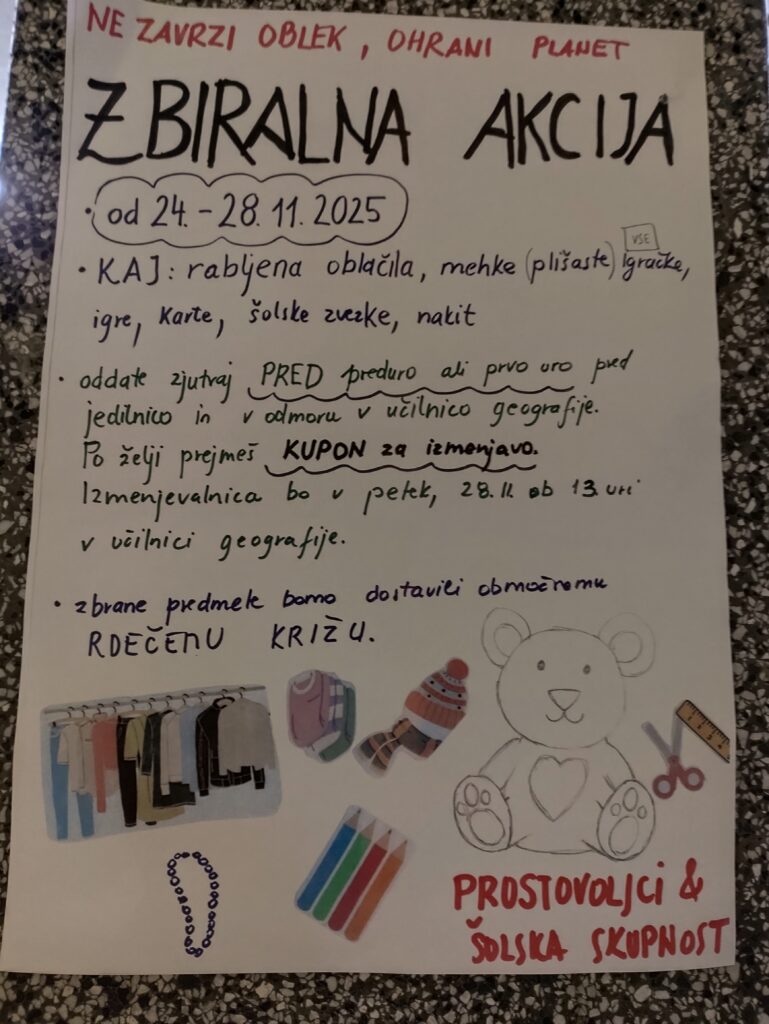 NE ZAVRZI OBLEK, OHRANI PLANET
ZBIRALNA AKCIJA
• od 24. - 28. 11. 2025
VSE
• KAJ: rabljena oblačila, mehke (plišaste) igračke,
igre, karte, šolske zvezke, nakit
• oddate zjutraj PRED preduro ali prvo uro pred
jedilnico in v odmoru v učilnico geografije.
Po želji prejmeš KUPON za izmenjavo.
Izmenjevalnica bo v petek, 28.11. ob 13. uri
v učilnici geografije.
• zbrane predmete bomo dostavili območnemu
RDEČEMU KRIŽU.
PROSTOVOLJCI &
ŠOLSKA SKUPNOST